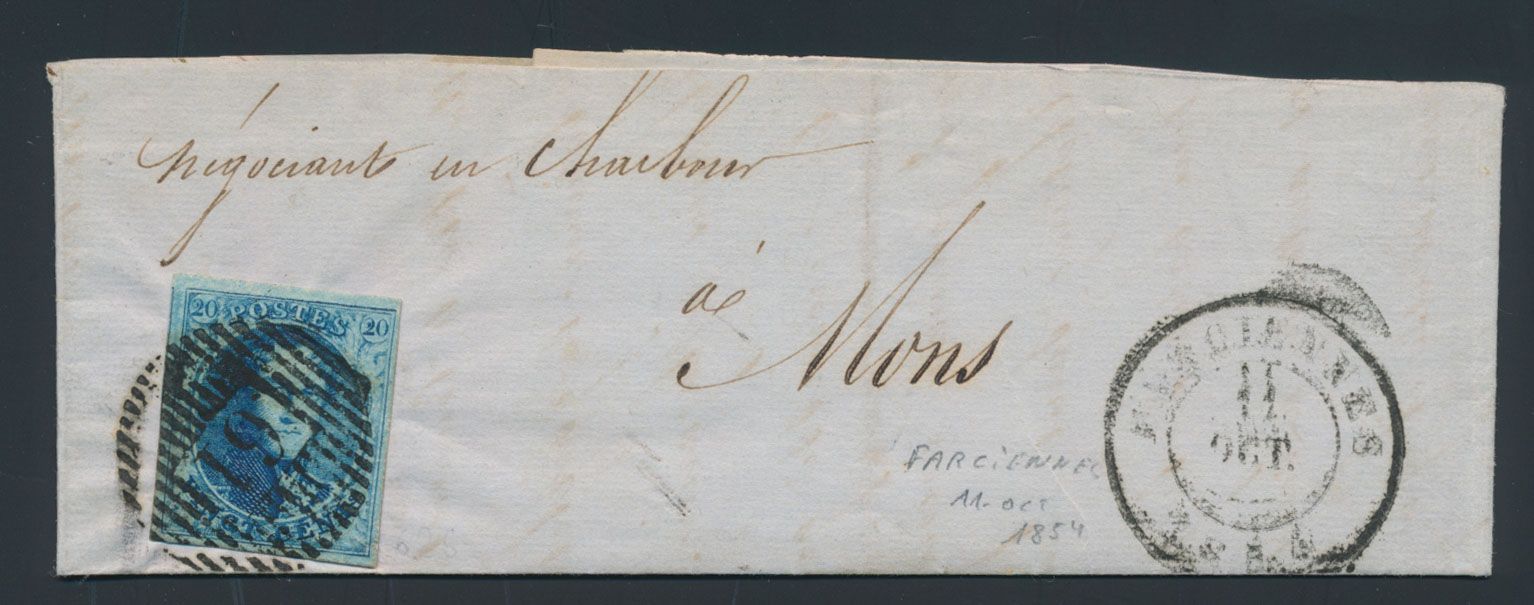 négociant en Charbon
à
Mons
20 POSTES 20
VINGT CENT
FARCIENNES
11
OCT.
FARCIENNES
11-oct
1854